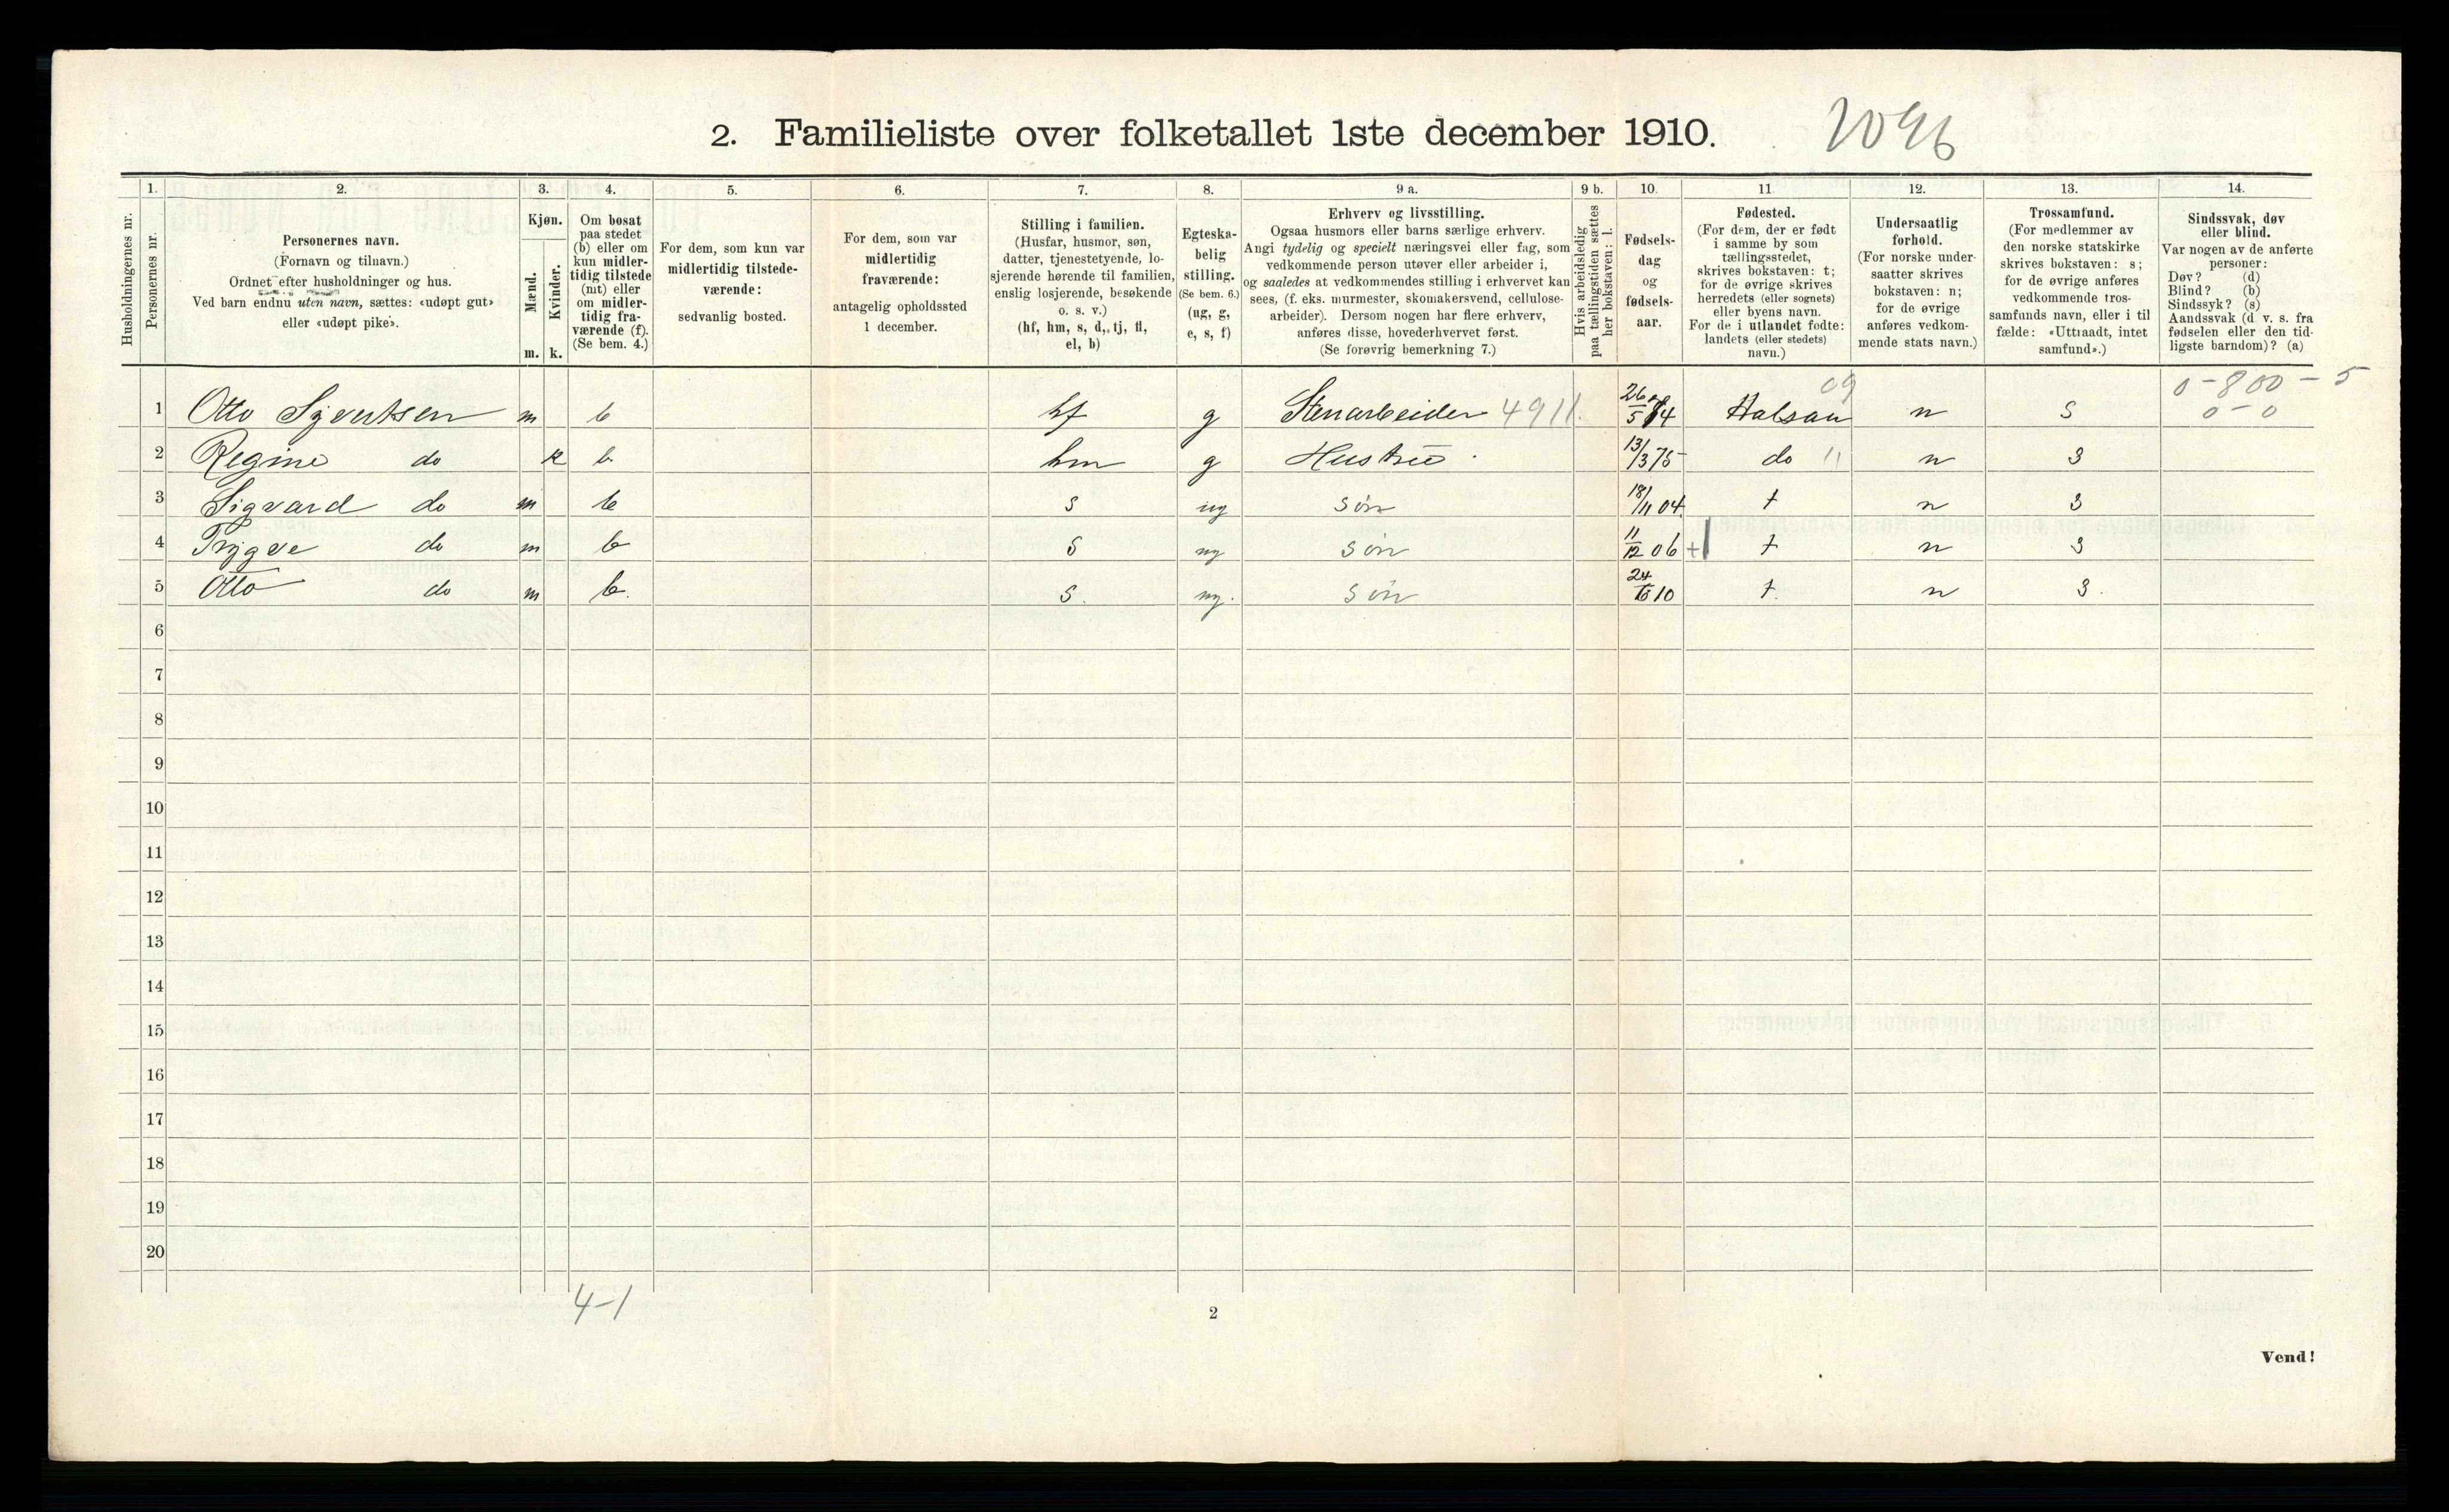 2. Familieliste over folketallet 1ste december 1910. 2096
1. 2. 3. 4. 5. 6. 7. 8. 9 a. 9 b. 10. 11. 12. 13. 14.
Husholdningernes nr.
Personernes nr.
Personernes navn.
(Fornavn og tilnavn.)
Ordnet efter husholdninger og hus.
Ved barn endnu uten navn, sættes: «udøpt gut»
eller «udøpt pike».
Kjøn.
Mænd.
Kvinder.
m. k.
Om bosat
paa stedet
(b) eller om
kun midler-
tidig tilstede
(mt) eller
om midler-
tidig fra-
værende (f).
(Se bem. 4.)
For dem, som kun var
midlertidig tilstede-
værende:
sedvanlig bosted.
For dem, som var
midlertidig
fraværende:
antagelig opholdssted
1 december.
Stilling i familien.
(Husfar, husmor, søn,
datter, tjenestetyende, lo-
sjerende hørende til familien,
enslig losjerende, besøkende
o. s. v.)
(hf, hm, s, d, tj, fl,
el, b)
Egteska-
belig
stilling.
(Se bem. 6.)
(ug, g,
e, s, f)
Erhverv og livsstilling.
Ogsaa husmors eller barns særlige erhverv.
Angi tydelig og specielt næringsvei eller fag, som
vedkommende person utøver eller arbeider i,
og saaledes at vedkommendes stilling i erhvervet kan
sees, (f. eks. murmester, skomakersvend, cellulose-
arbeider). Dersom nogen har flere erhverv,
anføres disse, hovederhvervet først.
(Se forøvrig bemerkning 7.)
Hvis arbeidsledig
paa tællingstiden sættes
her bokstaven: l.
Fødsels-
dag
og
fødsels-
aar.
Fødested.
(For dem, der er født
i samme by som
tællingsstedet,
skrives bokstaven: t;
for de øvrige skrives
herredets (eller sognets)
eller byens navn.
For de i utlandet fødte:
landets (eller stedets)
navn.)
Undersaatlig
forhold.
(For norske under-
saatter skrives
bokstaven: n;
for de øvrige
anføres vedkom-
mende stats navn.)
Trossamfund.
(For medlemmer av
den norske statskirke
skrives bokstaven: s;
for de øvrige anføres
vedkommende tros-
samfunds navn, eller i til
fælde: «Uttraadt, intet
samfund».)
Sindssvak, døv
eller blind.
Var nogen av de anførte
personer:
Døv? (d)
Blind? (b)
Sindssyk? (s)
Aandssvak (d v. s. fra
fødselen eller den tid-
ligste barndom)? (a)
09 0-800-5
1 Otto Syvertsen m b hf g Stenarbeider 4911 26/5 74 Halsau n s 0-0
2 Regine do k b hm g Hustru 13/3 75 do 11 n s
3 Sigvard do m b s ug søn 18/11 04 t n s
4 Trygve do m b s ug søn 11/12 06 + t n s
5 Otto do m b. s. ug. søn 24/6 10 t. n s.
6
7
8
9
10
11
12
13
14
15
16
17
18
19
20
4-1
2
Vend!